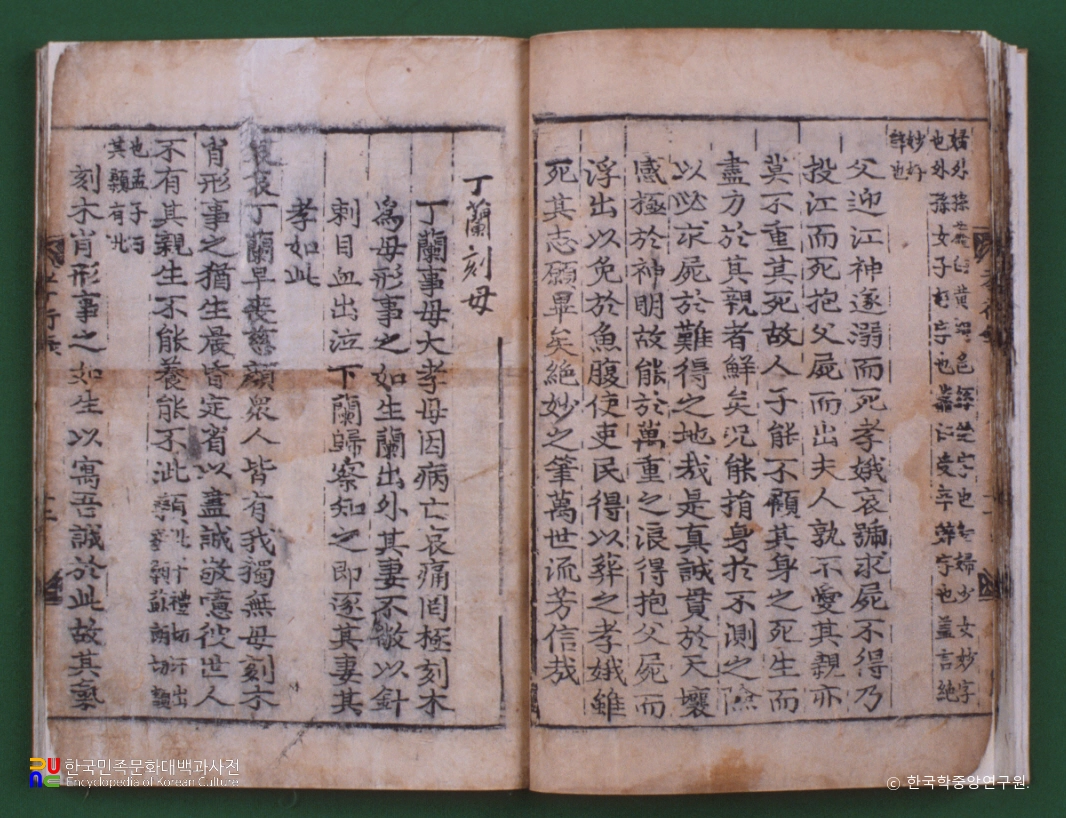 婦外孫虀臼黃絹色絲絶字也幼婦少女妙字
也外孫女子好字也虀臼受辛辤字也盖言絶
妙好
辤也
父迎江神遂溺而死孝娥哀號求屍不得乃
投江而死抱父屍而出夫人孰不愛其親亦
莫不重其死故人子能不顧其身之死生而
盡方於其親者鮮矣况能捐身於不測之
以必求屍於難得之地哉是真誠貫於天壤
感極於神明故能於萬重之浪得抱父屍而
浮出以免於魚腹使吏民得以葬之孝娥雖
死其志願畢矣絶妙之筆萬世流芳信哉
丁蘭刻母
丁蘭事母大孝母因病亡哀痛罔極刻木
爲母形事之如生蘭出外其妻不敬以針
刺目血出泣下蘭歸察知之即逐其妻其
孝如此
哀哀丁蘭早喪慈顔衆人皆有我獨無母刻木
肖形事之猶生晨昏定省以盡誠敬噫彼世人
不有其親生不能養能不泚顙泚
也孟子曰
其顙有泚
刻木肖形事之如生以寓吾誠於此故其氣
孝行錄
한국민족문화대백과사전
Encyclopedia of Korean Culture
© 한국학중앙연구원.